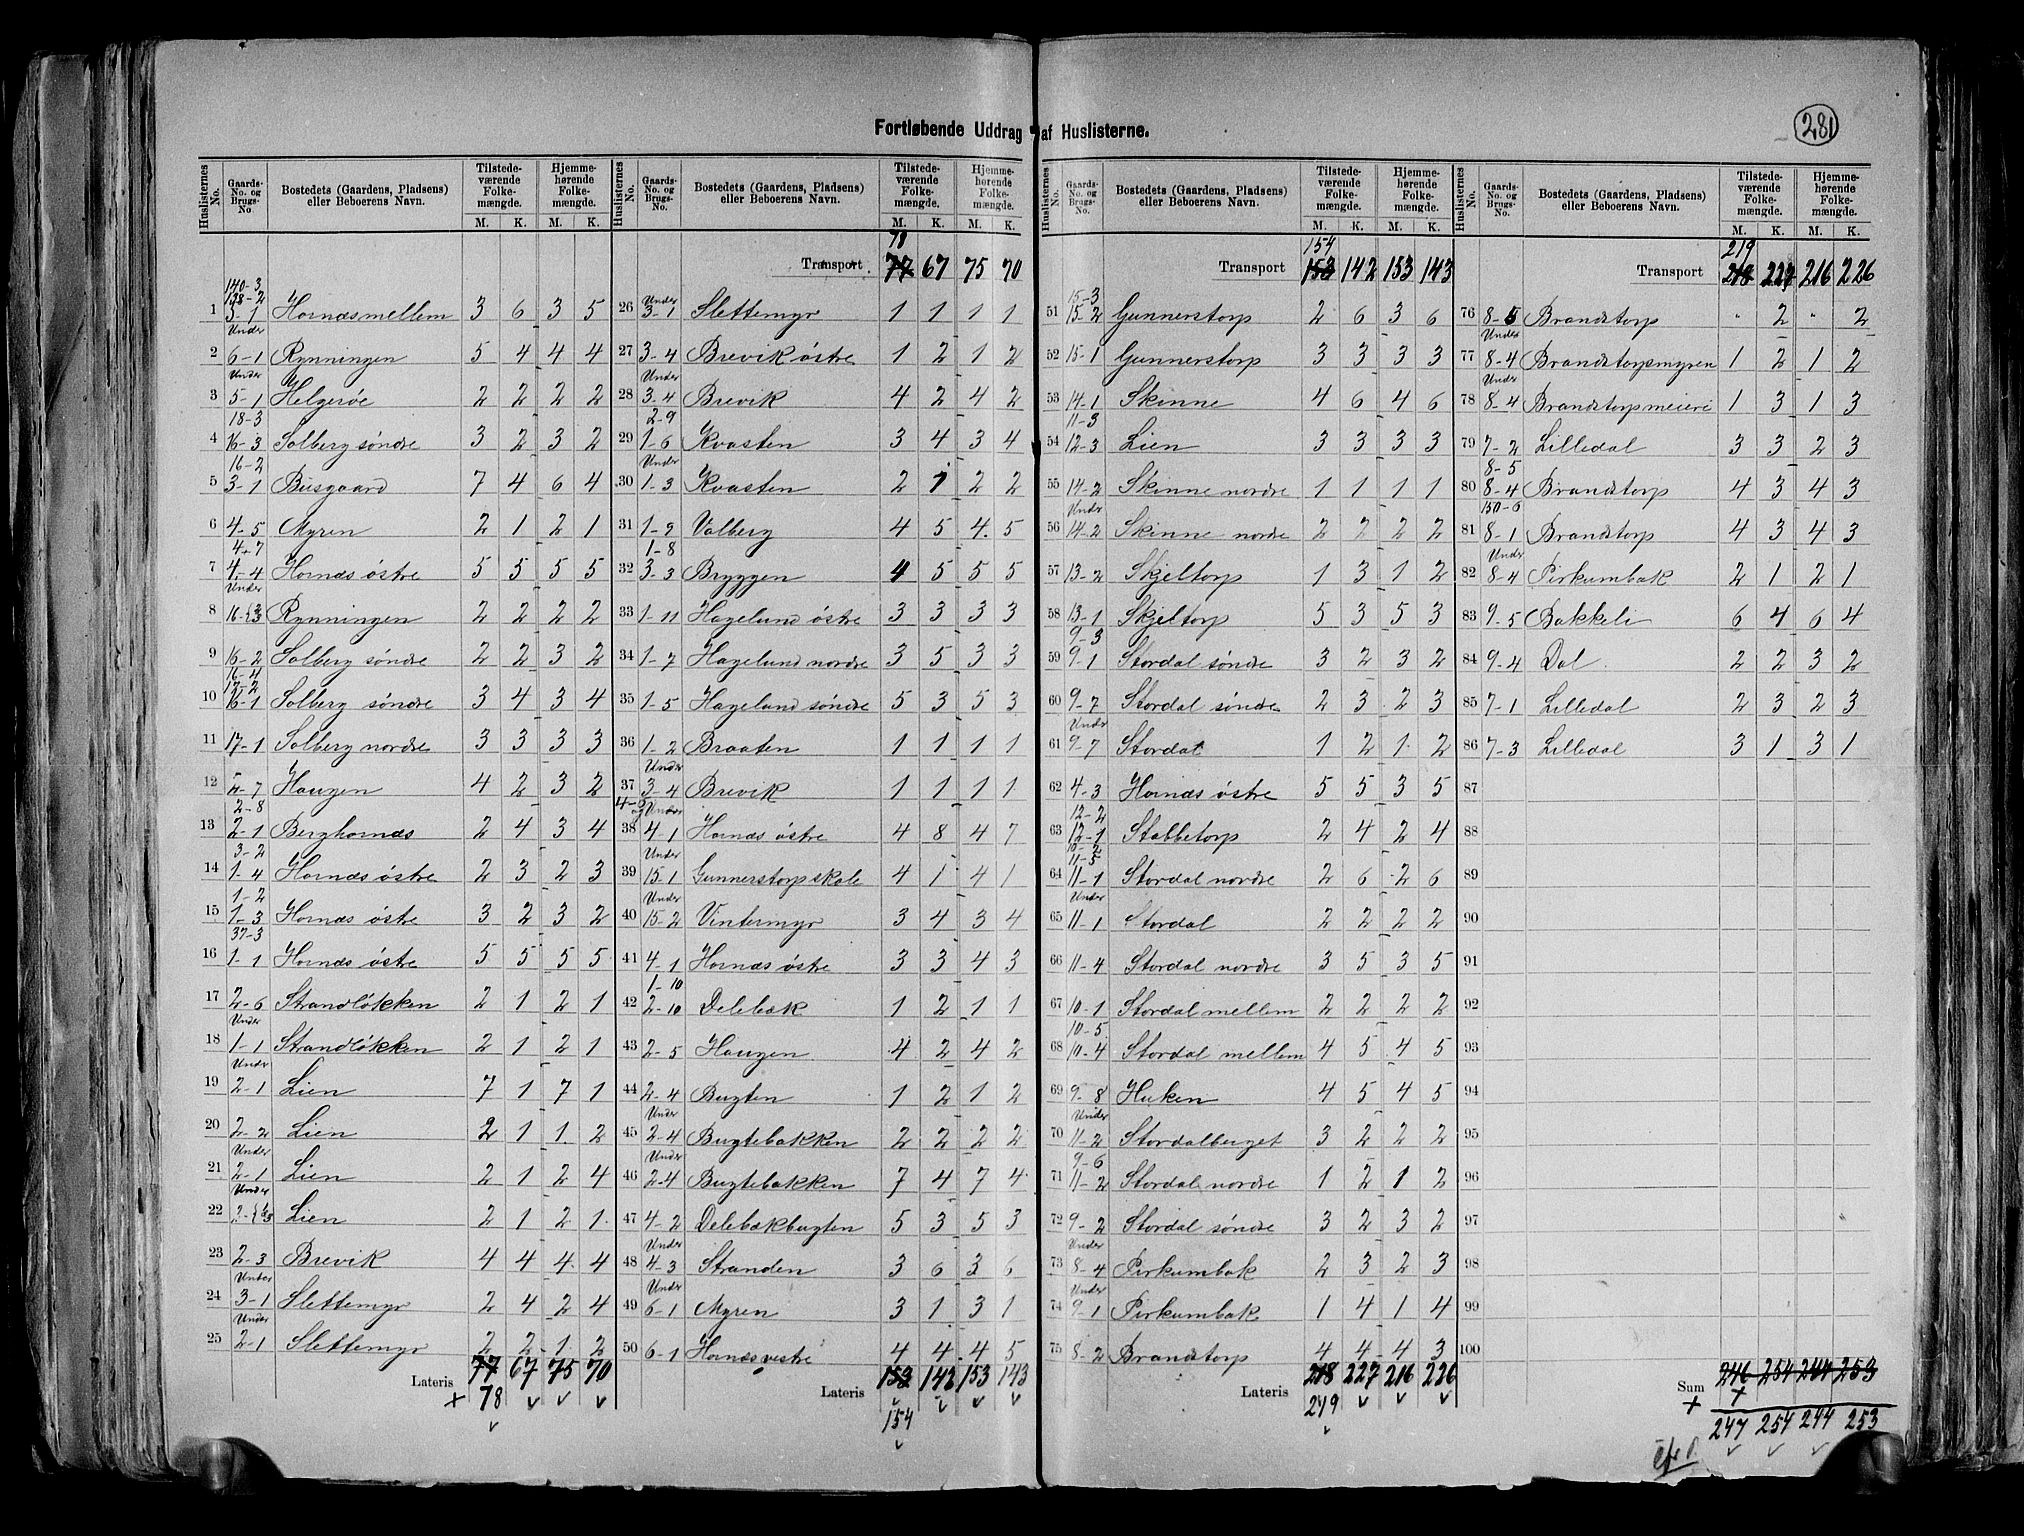 281
Fortløbende Uddrag af Huslisterne.
Huslisternes No. Gaards-No. og Brugs-No. Bostedets (Gaardens, Pladsens) eller Beboerens Navn. Tilstedeværende Folkemængde. M. K. Hjemmehørende Folkemængde. M. K.
140-3
128-2
1 3-1 Hornæs mellem 3 6 3 5
Under
2 6-1 Rynningen 5 4 4 4
Under
3 5-1 Helgerøe 2 2 2 2
18-3
4 16-3 Solberg søndre 3 2 3 2
16-2
5 3-1 Busgaard 7 4 6 4
6 4-5 Myren 2 1 2 1
4-7
7 4-4 Hornæs østre 5 5 5 5
Under
8 16-{2/3 Rynningen 2 2 2 2
9 16-2 Solberg søndre 2 2 3 2
16-4
17-2
10 16-1 Solberg søndre 3 4 3 4
11 17-1 Solberg nordre 3 3 3 3
12 2-7 Haugen 4 2 3 2
2-8
13 2-1 Berghornæs 2 4 3 4
3-2
14 1-4 Hornæs østre 2 3 2 3
1-2
15 1-3 Hornæs østre 3 2 3 2
37-3
16 1-1 Hornæs østre 5 5 5 5
17 2-6 Strandløkken 2 1 2 1
Under
18 1-1 Strandløkken 2 1 2 1
Under
19 2-1 Lien 7 1 7 1
20 2-2 Lien 2 1 1 2
Under
21 2-1 Lien 2 1 2 4
Under
22 Lien 2 1 2 1
23 2-3 Brevik 4 4 4 4
Under
24 3-1 Slettemyr 2 4 2 4
Under
25 2-1 Slettemyr 2 2 1 2
Lateris 77 67 75 70
+ 78
Huslisternes No. Gaards-No. og Brugs-No. Bostedets (Gaardens, Pladsens) eller Beboerens Navn. Tilstedeværende Folkemængde. M. K. Hjemmehørende Folkemængde. M. K.
78
Transport 77 67 75 70
Under
26 3-1 Slettemyr 1 1 1 1
27 3-4 Brevik østre 1 2 1 2
Under
28 3-4 Brevik 4 2 4 2
2-9
29 1-6 Kvasten 3 4 3 4
Under
30 1-3 Kvasten 2 1 2 2
31 1-9 Valberg 4 5 4 5
1-8
32 3-3 Bryggen 4 5 5 5
33 1-11 Hagelund østre 3 3 3 3
34 1-7 Hagelund nordre 3 5 3 3
35 1-5 Hagelund søndre 5 3 5 3
36 1-2 Braaten 1 1 1 1
Under
37 3-4 Brevik 1 1 1 1
Under
38 4-1 Hornæs østre 4 8 4 7
Under
39 15-1 Gunnerstorp skole 4 1 4 1
Under
40 15-2 Vintermyr 3 4 3 4
41 4-1 Hornæs østre 3 3 4 3
1-10
42 2-10 Delebæk 1 2 1 1
43 2-5 Haugen 4 2 4 2
44 2-4 Bugten 1 2 1 2
Under
45 2-4 Bugtebakken 2 2 2 2
Under
46 2-4 Bugtebakken 7 4 7 4
47 4-2 Delebækbugten 5 3 5 3
Under
48 4-3 Stranden 3 6 3 6
Under
49 6-1 Myren 3 1 3 1
50 6-1 Hornæs vestre 4 4 4 5
Lateris 153 142 153 143
154
Huslisternes No. Gaards-No. og Brugs-No. Bostedets (Gaardens, Pladsens) eller Beboerens Navn. Tilstedeværende Folkemængde. M. K. Hjemmehørende Folkemængde. M. K.
154
Transport 153 142 153 143
15-3
51 15-2 Gunnerstorp 2 6 3 6
52 15-1 Gunnerstorp 3 3 3 3
53 14-1 Skinne 4 6 4 6
11-3
54 12-3 Lien 3 3 3 3
55 14-2 Skinne nordre 1 1 1 1
Under
56 14-2 Skinne nordre 2 2 2 2
57 13-2 Skjeltorp 1 3 1 2
58 13-1 Skjeltorp 5 3 5 3
9-3
59 9-1 Stordal søndre 3 2 3 2
60 9-7 Stordal søndre 2 3 2 3
Under
61 9-7 Stordal 1 2 1 2
62 4-3 Hornæs østre 5 5 3 5
12-2
63 12-1 Stabbetorp 2 4 2 4
10-2
11-5
64 11-1 Stordal nordre 2 6 2 6
Under
65 11-1 Stordal 2 2 2 2
66 11-4 Stordal nordre 3 5 3 5
67 10-1 Stordal mellem 2 2 2 2
10-5
68 10-4 Stordal mellem 4 5 4 5
69 9-8 Huken 4 5 4 5
Under
70 11-2 Stordalberget 3 2 2 2
9-6
71 11-2 Stordal nordre 1 2 1 2
72 9-2 Stordal søndre 3 2 3 2
Under
73 8-4 Pirkumbak 2 3 2 3
Under
74 9-1 Pirkumbak 1 4 1 4
75 8-2 Brandstorp 4 4 4 3
Lateris 218 227 216 226
219
Huslisternes No. Gaards-No. og Brugs-No. Bostedets (Gaardens, Pladsens) eller Beboerens Navn. Tilstedeværende Folkemængde. M. K. Hjemmehørende Folkemængde. M. K.
219
Transport 218 227 216 226
76 8-5 Brandstorp " 2 " 2
Under
77 8-4 Brandstorpsmyren 1 2 1 2
Under
78 8-4 Brandstorpmeieri 1 3 1 3
79 7-2 Lilledal 3 3 2 3
8-5
80 8-4 Brandstorp 4 3 4 3
150-6
81 8-1 Brandstorp 4 3 4 3
Under
82 8-4 Pirkumbak 2 1 2 1
83 9-5 Bakkeli 6 4 6 4
84 9-4 Dal 2 2 3 2
85 7-1 Lilledal 2 3 2 3
86 7-3 Lilledal 3 1 3 1
87
88
89
90
91
92
93
94
95
96
97
98
99
100
Sum 246 254 244 253
+ 247 254 244 253